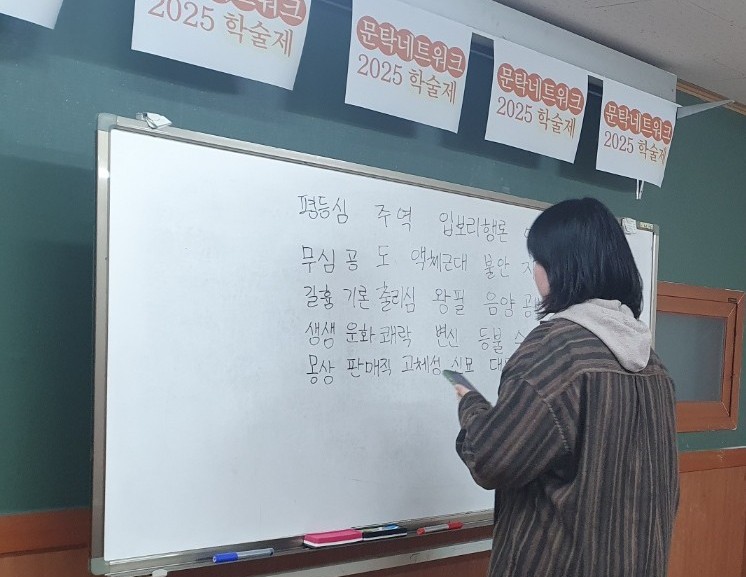 문탁네트워크
2025 학술제
문탁네트워크
2025 학술제
문탁네트워크
2025 학술제
문탁네트워크
2025 학술제
평등심 주역 입보리행론
무심 공 도 액체근대 불안
길흉 기론 출리심 왕필 음양
샘샘 운화 쾌락 변신 등불
몽상 판매직 고체성